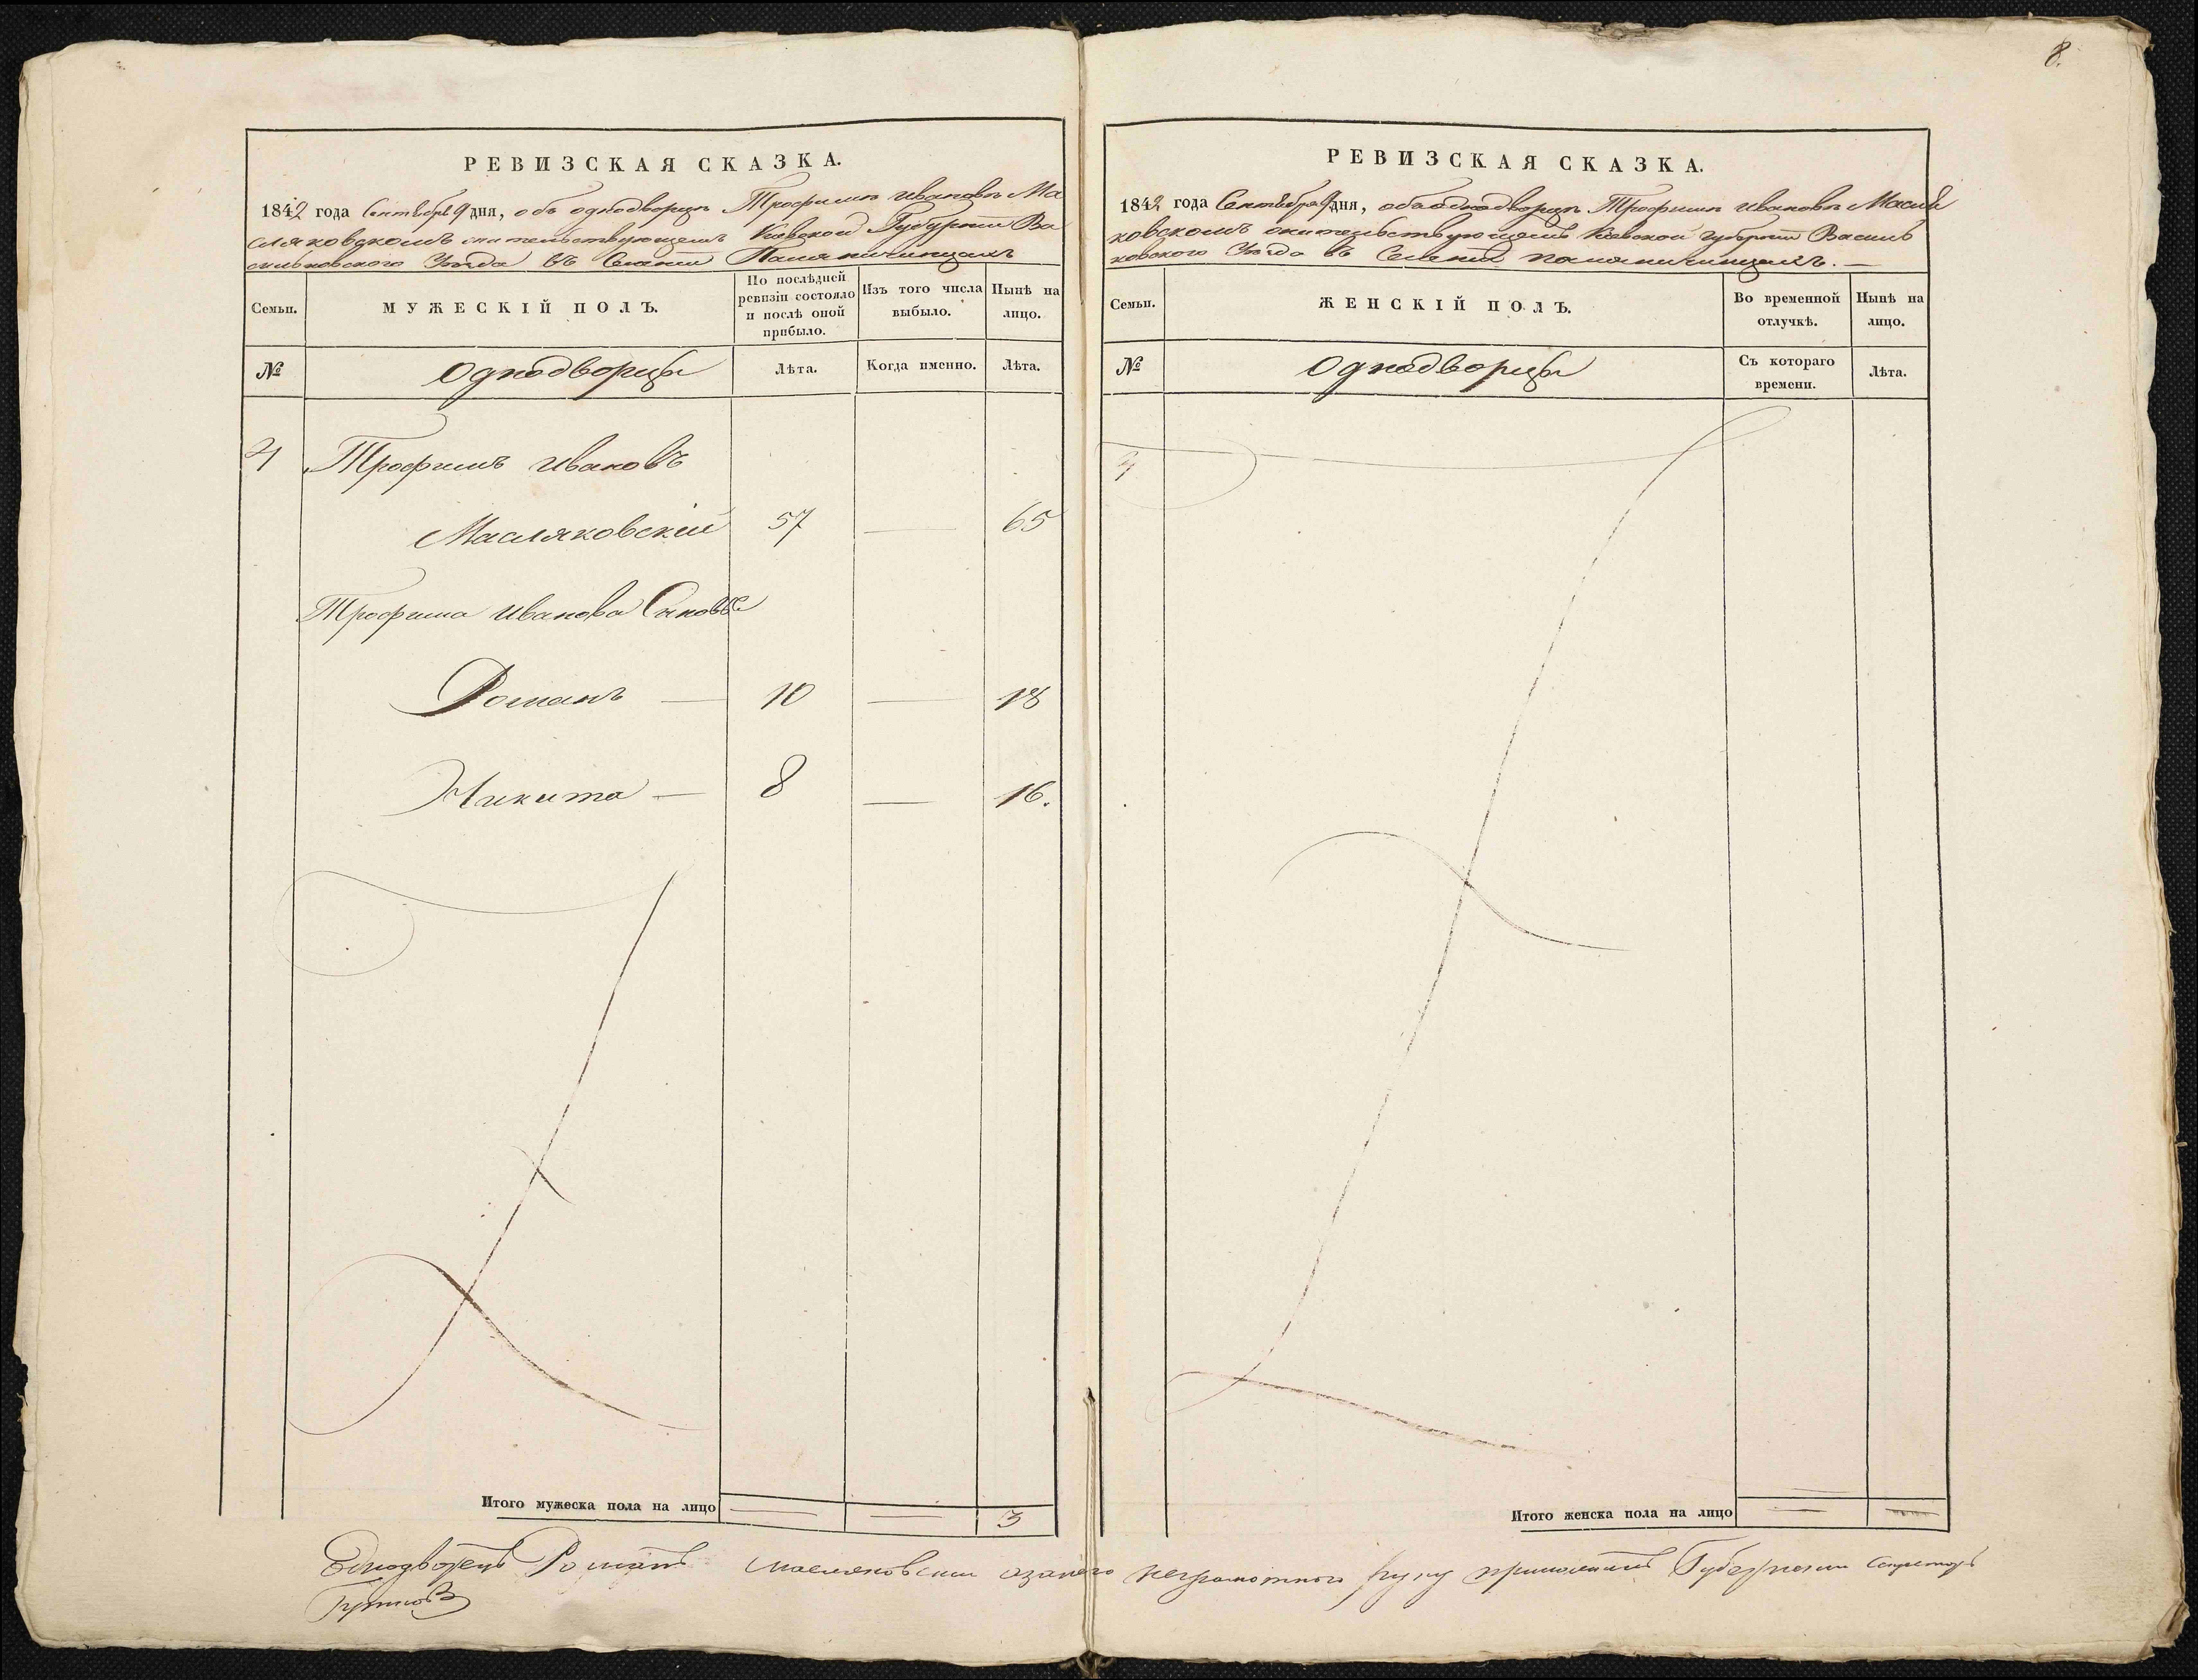 8.
РЕВИЗСКАЯ СКАЗКА.
1842 года Сентября 9 дня, объ однодворце Трофиме Иванове Ма
сляковскомъ жительствующемъ Киевской Губернии Ва
сильковского Уезда въ Селении
Семьи.
МУЖЕСКІЙ ПОЛЪ.
По послѣдней ревизіи состояло и послѣ оной прибыло.
Изъ того числа выбыло.
Нынѣ на лицо.
№
Однодворцы
Лѣта.
Когда именно.
Лѣта.
4 Трофимъ Ивановъ
Масляковский 57 — 65
Трофима Иванова Сыновье
Романъ — 10 — 18
Никита — 8 — 16.
Итого мужеска пола на лицо — — 3
РЕВИЗСКАЯ СКАЗКА.
1842 года Сентября 9 дня, объ однодворце Трофиме Иванове Масля
ковскомъ жительствующемъ Киевской Губернии Василь
ковского Уезда въ Селении
Семьи.
ЖЕНСКІЙ ПОЛЪ.
Во временной отлучкѣ.
Нынѣ на лицо.
№
Однодворцы
Съ котораго времени.
Лѣта.
4
Итого женска пола на лицо — —
Однодворецъ Романъ Масляковский а за него неграмотного руку приложилъ Губернский Секретарь